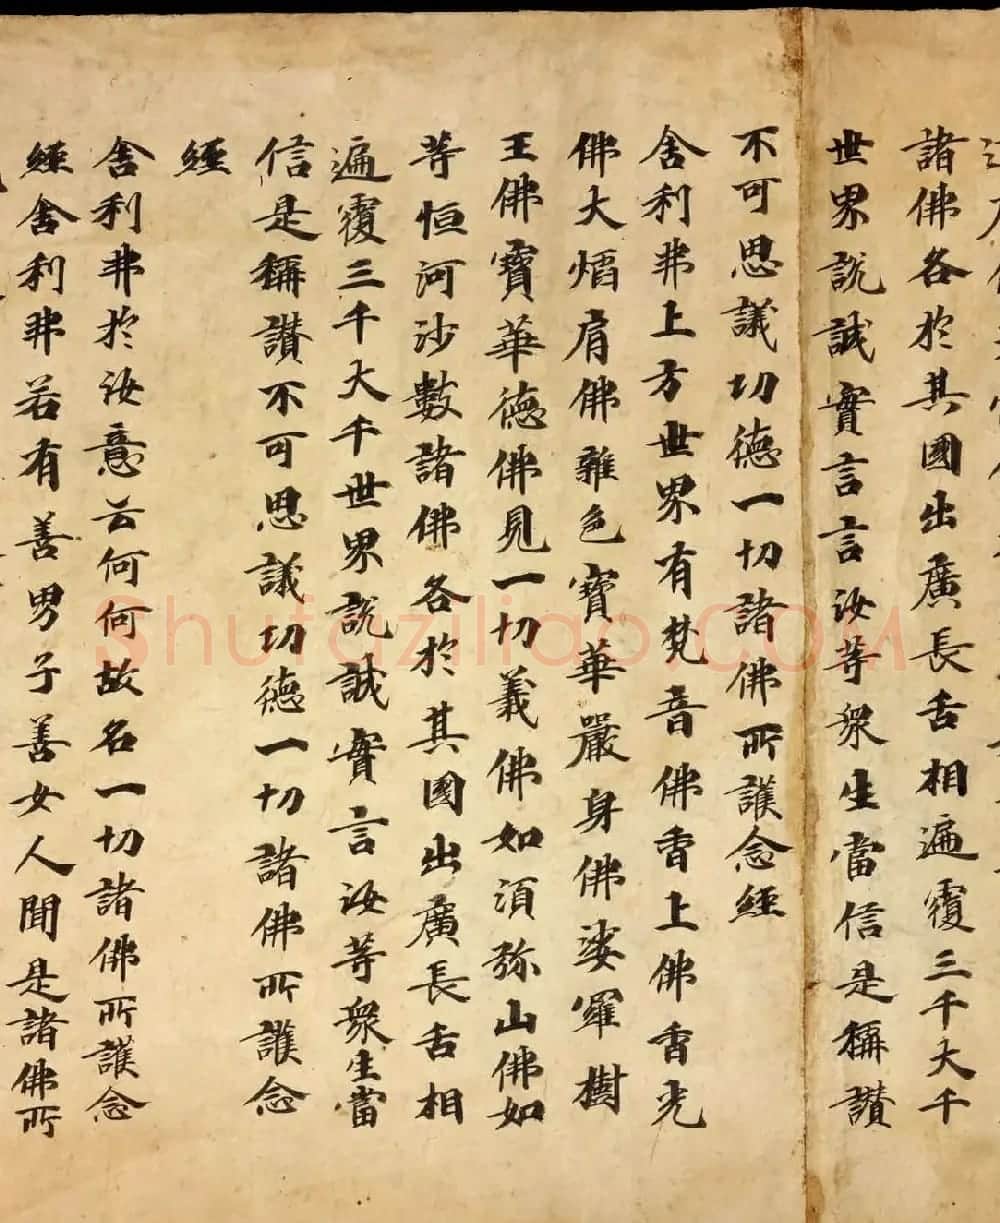 諸佛各於其國出廣長舌相遍覆三千大千
世界說誠實言言汝等眾生當信是稱讚
不可思議功德一切諸佛所護念經
舍利弗上方世界有梵音佛香上佛香光
佛大熖肩佛雜色寶華嚴身佛娑羅樹
王佛寶華德佛見一切義佛如須弥山佛如
等恒河沙數諸佛各於其國出廣長舌相
遍覆三千大千世界說誠實言汝等眾生當
信是稱讚不可思議功德一切諸佛所護念
經
舍利弗於汝意云何何故名一切諸佛所護念
經舍利弗若有善男子善女人聞是諸佛所
Shufaziliao.COM